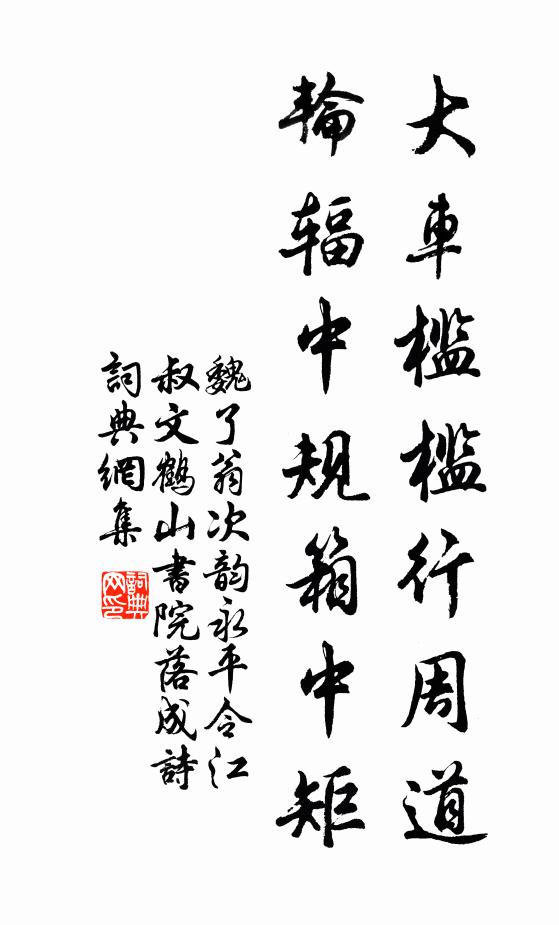 大車檻檻行周道
輪辐中規箱中矩
魏了翁次韵永平令江
叔文鶴山書院落成詩
詞典網集
詞典网印